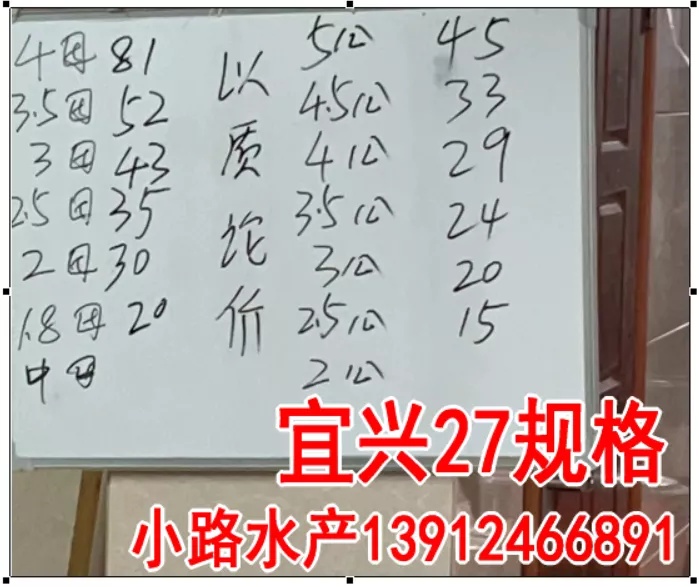 4母 81
3.5母 52
3母 43
2.5母 35
2母 30
1.8母 20
中母
以质论价
5公 45
4.5公 33
4公 29
3.5公 24
3公 20
2.5公 15
2公
宜兴27规格
小路水产13912466891